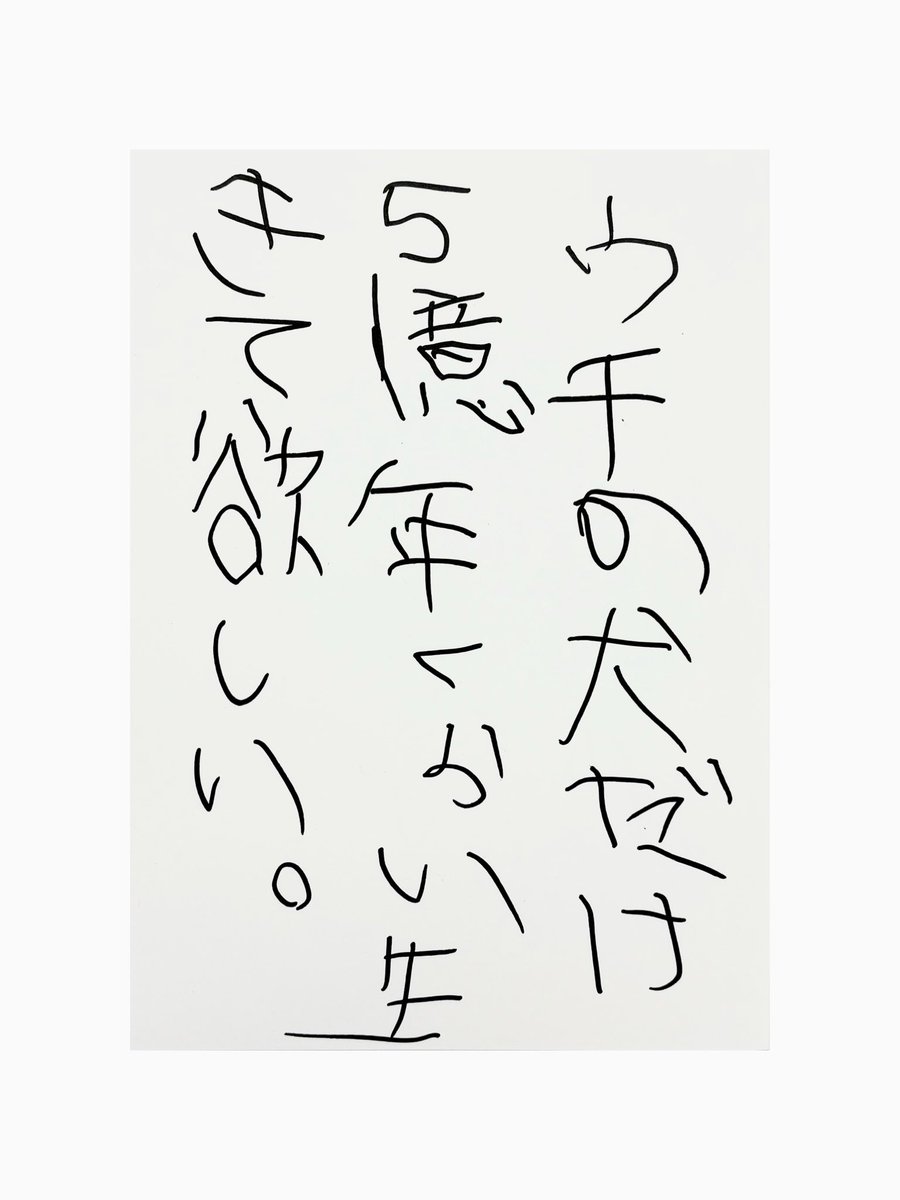 ウチの犬だけ
5億年くらい生
きて欲しい。